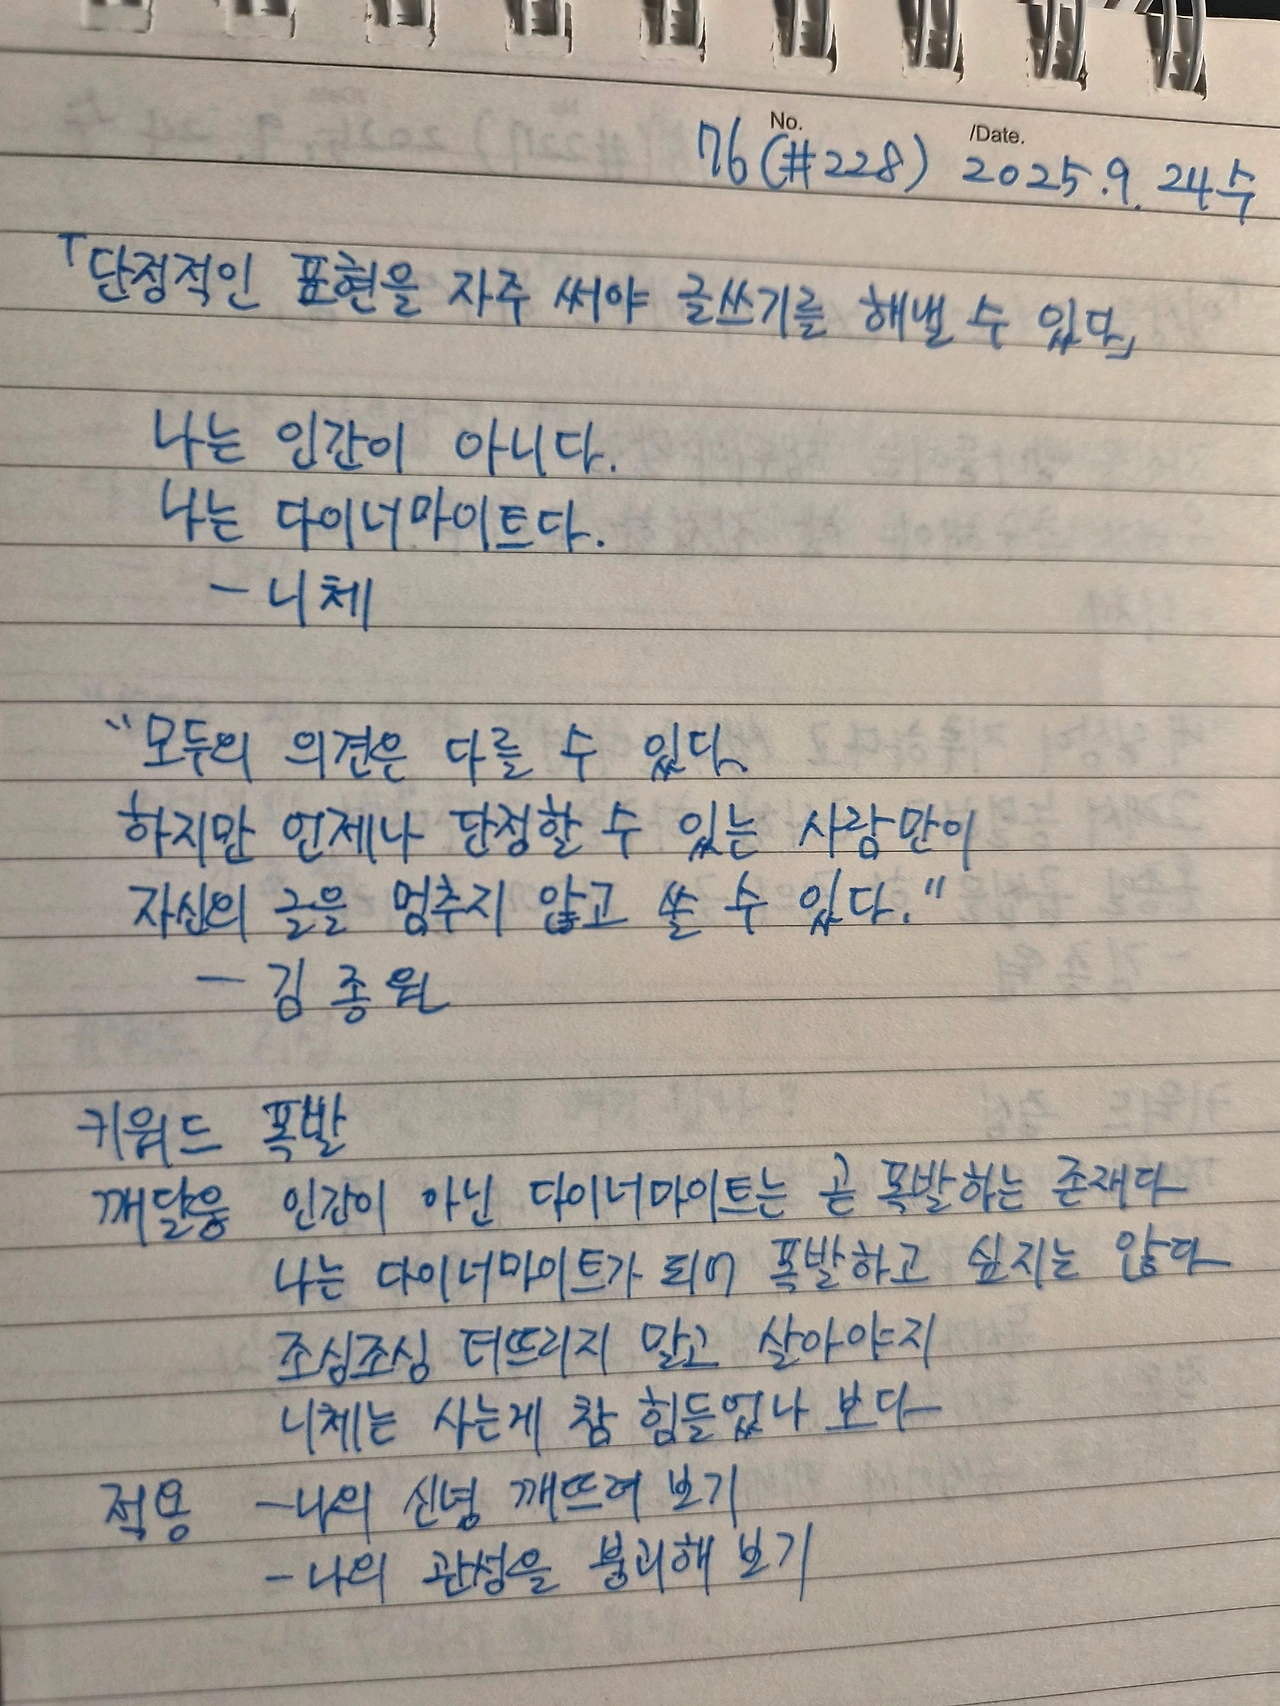 No. /Date.
76(#228) 2025.9.24수
「단정적인 표현을 자주 써야 글쓰기를 해낼 수 있다」
나는 인간이 아니다.
나는 다이너마이트다.
- 니체
"모두의 의견은 다를 수 있다
하지만 언제나 단정할 수 있는 사람만이
자신의 글을 멈추지 않고 쓸 수 있다."
- 김종원
키워드 폭발
깨달음 인간이 아닌 다이너마이트는 곧 폭발하는 존재다
나는 다이너마이트가 되어 폭발하고 싶지는 않다
조심조심 터뜨리지 말고 살아야지
니체는 사는게 참 힘들었나 보다
적용 -나의 신념 깨뜨려 보기
-나의 관성을 붕괴해 보기